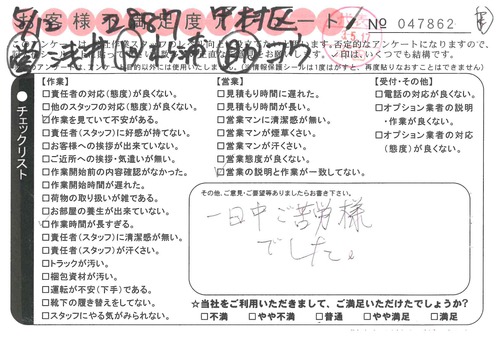 お客様満足度アンケートシート
No 047862
否定的なアンケートになりますので、
✓印は、いくつでも結構です。
チェックリスト
【作業】
□責任者の対応(態度)が良くない。
□他のスタッフの対応(態度)が良くない。
□作業を見ていて不安がある。
□責任者(スタッフ)に好感が持てない。
□お客様への挨拶が出来ていない。
□ご近所への挨拶・気遣いが無い。
□作業開始前の内容確認がなかった。
□作業開始時間が遅れた。
□荷物の取り扱いが雑である。
□お部屋の養生が出来ていない。
□作業時間が長すぎる。
□責任者(スタッフ)に清潔感が無い。
□責任者(スタッフ)が汗くさい。
□トラックが汚い。
□梱包資材が汚い。
□運転が不安(下手)である。
□靴下の履き替えをしてない。
□スタッフにやる気がみられない。
【営業】
□見積もり時間に遅れた。
□見積もり時間が長い。
□営業マンに清潔感が無い。
□営業マンが煙草くさい。
□営業マンが汗くさい。
□営業態度が良くない。
□営業の説明と作業が一致してない。
【受付・その他】
□電話の対応が良くない。
□オプション業者の説明
・作業が良くない。
□オプション業者の対応
(態度)が良くない。
その他、ご意見・ご要望等ありましたらお書き下さい。
一日中ご苦労様
でした。
☆当社をご利用いただきまして、ご満足いただけたでしょうか?
□不満 □やや不満 □普通 □やや満足 □満足